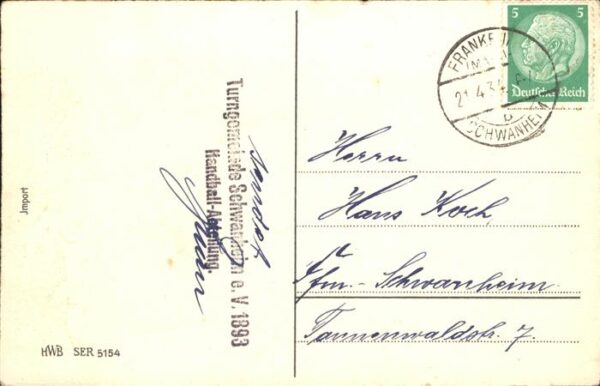 5 5
Deutsches Reich
FRANKFURT
(MAIN)
21.4.3
b
SCHWANHEIM
sendet
Turngemeinde Schwanheim e. V. 1893
Handball-Abteilung.
Herrn
Hans Koch,
Ffm.-Schwanheim
Tannenwaldstr. 7.
Jmport
HWB SER 5154